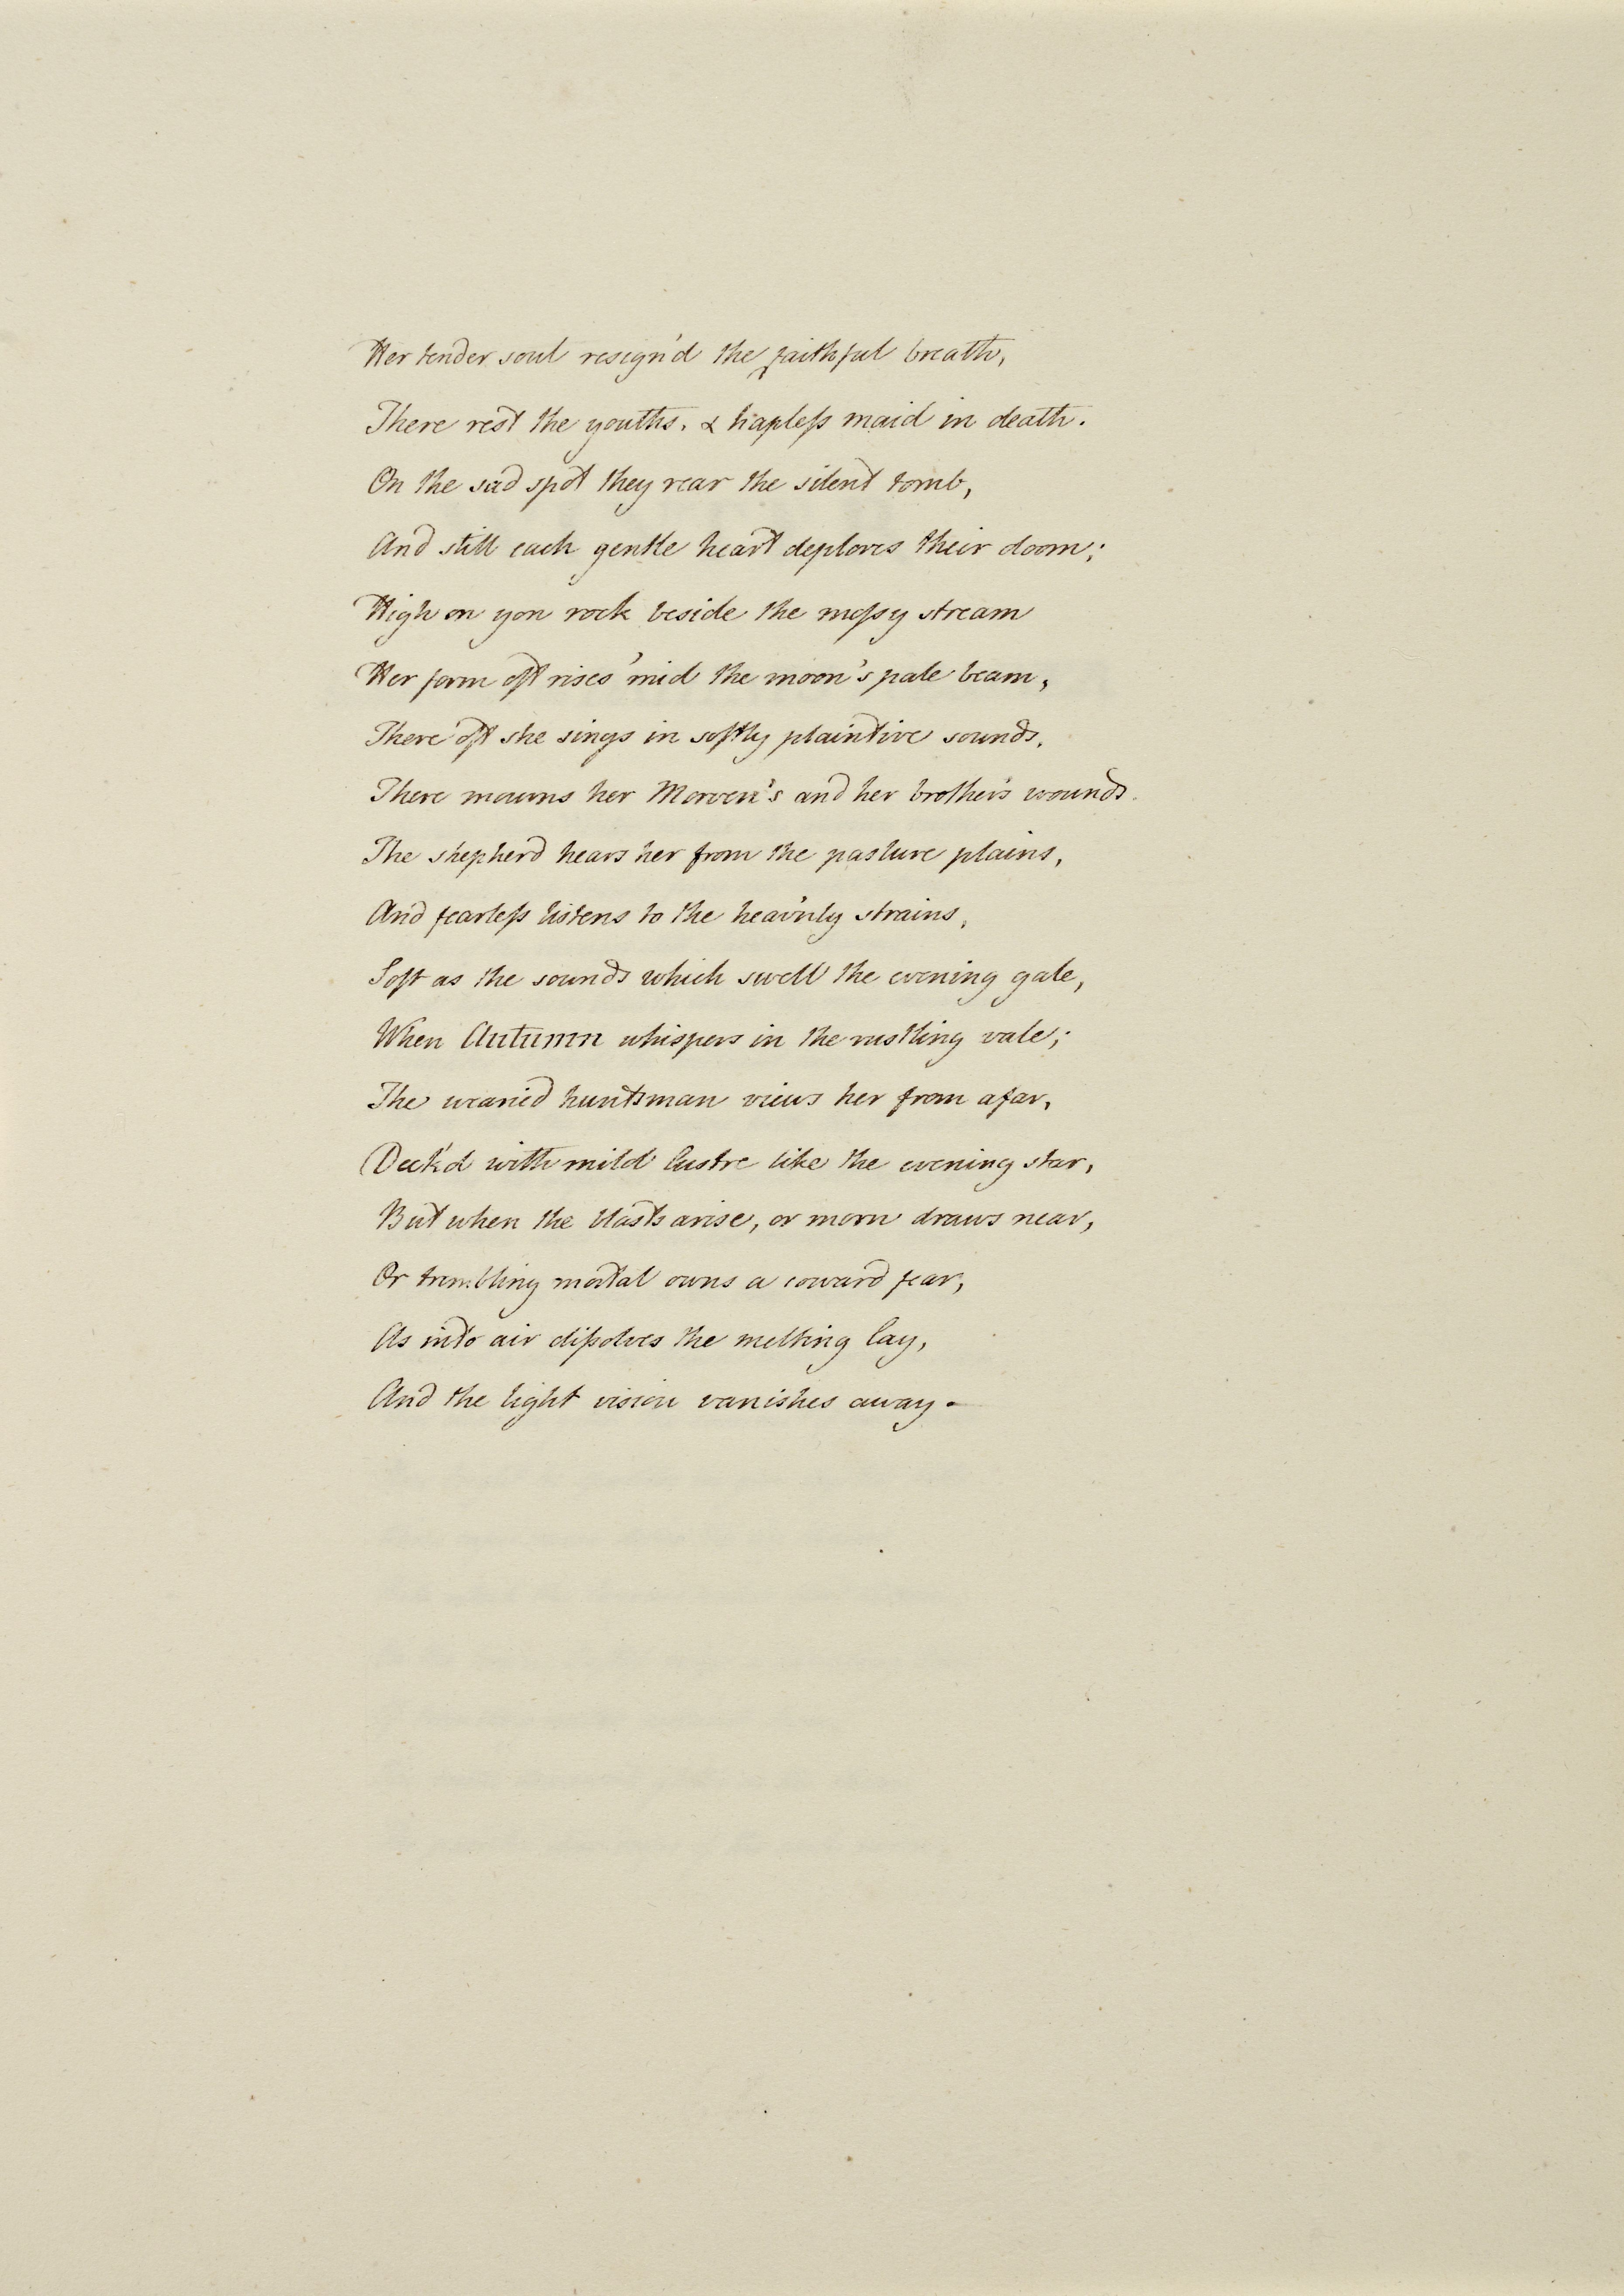 Her tender soul resign'd the faithful breath,
There rest the youths, & hapleſs maid in death.
On the sad spot they rear the silent tomb,
And still each gentle heart deplores their doom;
High on yon rock beside the moſsy stream
Her form oft rises 'mid the moon's pale beam,
There oft she sings in softly plaintive sounds,
There mourns her Morven's and her brother's wounds.
The shepherd hears her from the pasture plains,
And fearleſs listens to the heav'nly strains,
Soft as the sounds which swell the evening gale,
When Autumn whispers in the rustling vale;
The wearied huntsman views her from afar,
Deck'd with mild lustre like the evening star,
But when the blasts arise, or morn draws near,
Or trembling mortal owns a coward fear,
As into air diſsolves the melting lay,
And the light vision vanishes away.